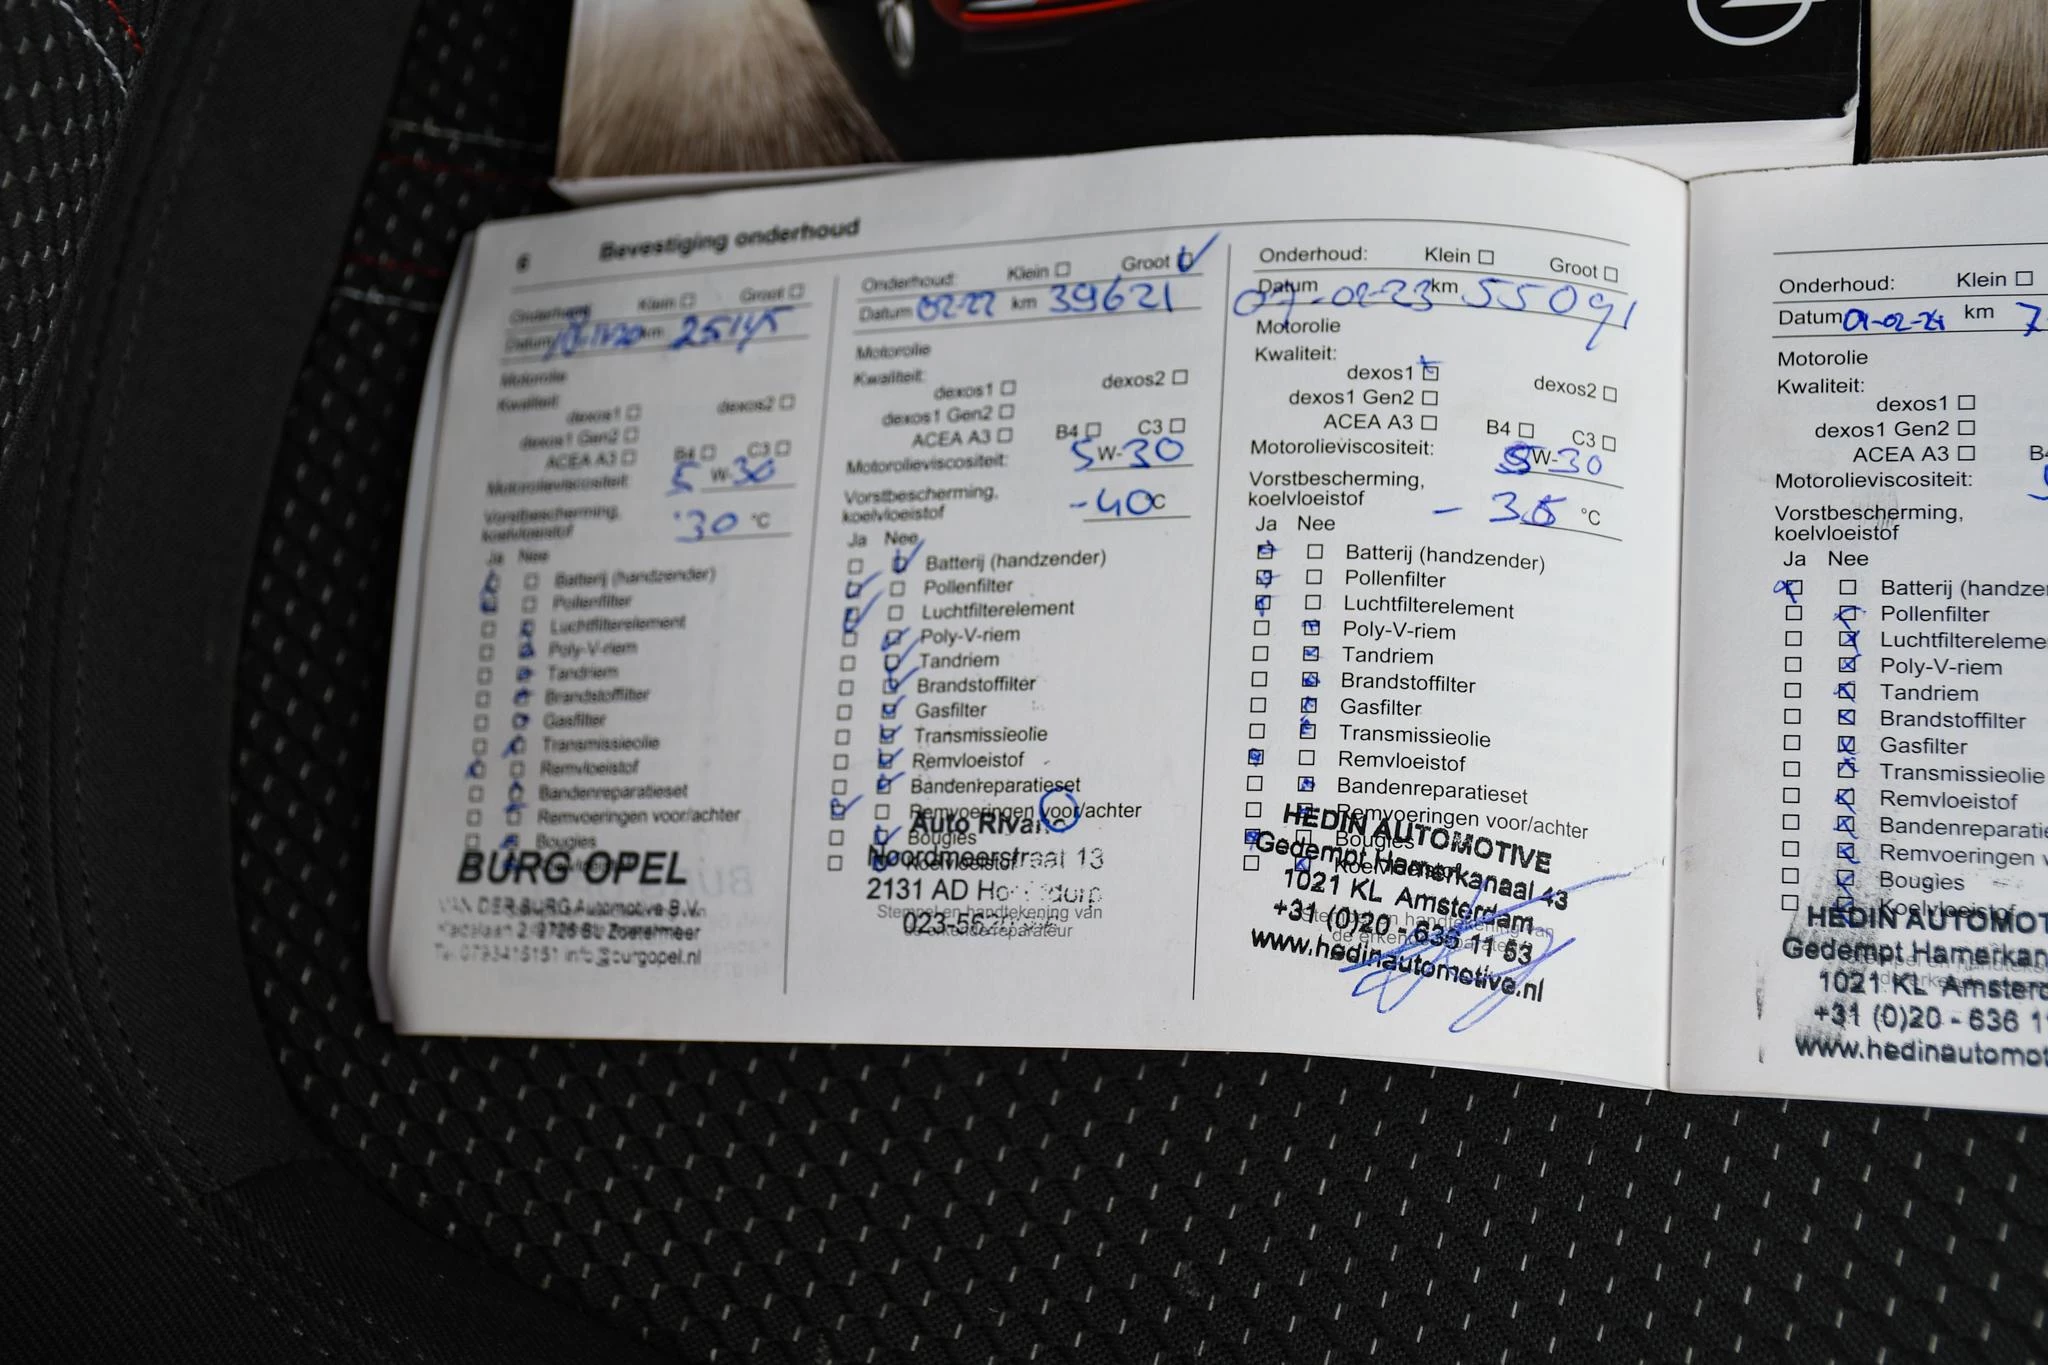 6 Bevestiging onderhoud
Onderhoud: Klein Groot
Datum km
Motorolie
Kwaliteit:
dexos1 dexos2
dexos1 Gen2
ACEA A3 B4 C3
Motorolieviscositeit: 5 W-30
Vorstbescherming,
koelvloeistof 30 °C
Ja Nee
Batterij (handzender)
Pollenfilter
Luchtfilterelement
Poly-V-riem
Tandriem
Brandstoffilter
Gasfilter
Transmissieolie
Remvloeistof
Bandenreparatieset
Remvoeringen voor/achter
Bougies
BURG OPEL
VAN DER BURG Automotive B.V.
Zoetermeer
info@burgopel.nl
Onderhoud: Klein Groot
Datum 02-22 km 39621
Motorolie
Kwaliteit:
dexos1 dexos2
dexos1 Gen2
ACEA A3 B4 C3
Motorolieviscositeit: 5 W-30
Vorstbescherming,
koelvloeistof -40 °C
Ja Nee
Batterij (handzender)
Pollenfilter
Luchtfilterelement
Poly-V-riem
Tandriem
Brandstoffilter
Gasfilter
Transmissieolie
Remvloeistof
Bandenreparatieset
Remvoeringen voor/achter
Auto
Bougies
Noordmeerstraat 13
Koelvloeistof
2131 AD
Stempel en handtekening van
de erkende reparateur
Onderhoud: Klein Groot
Datum 07-02-23 km 55091
Motorolie
Kwaliteit:
dexos1 dexos2
dexos1 Gen2
ACEA A3 B4 C3
Motorolieviscositeit: 5 W-30
Vorstbescherming,
koelvloeistof °C
Ja Nee
Batterij (handzender)
Pollenfilter
Luchtfilterelement
Poly-V-riem
Tandriem
Brandstoffilter
Gasfilter
Transmissieolie
Remvloeistof
Bandenreparatieset
Remvoeringen voor/achter
HEDIN AUTOMOTIVE
Bougies
Gedempt Hamerkanaal 43
Koelvloeistof
1021 KL Amsterdam
+31 (0)20 - 636 11 53
www.hedinautomotive.nl
Onderhoud: Klein
Datum 01-02-24 km 7
Motorolie
Kwaliteit:
dexos1
dexos1 Gen2
ACEA A3
Motorolieviscositeit:
Vorstbescherming,
koelvloeistof
Ja Nee
Batterij (handze
Pollenfilter
Luchtfiltereleme
Poly-V-riem
Tandriem
Brandstoffilter
Gasfilter
Transmissieolie
Remvloeistof
Bandenreparati
Remvoeringen v
Bougies
Koelvloeistof
HEDIN AUTOMOT
Gedempt Hamerkan
1021 KL Amsterd
+31 (0)20 - 636 1
www.hedinautomot